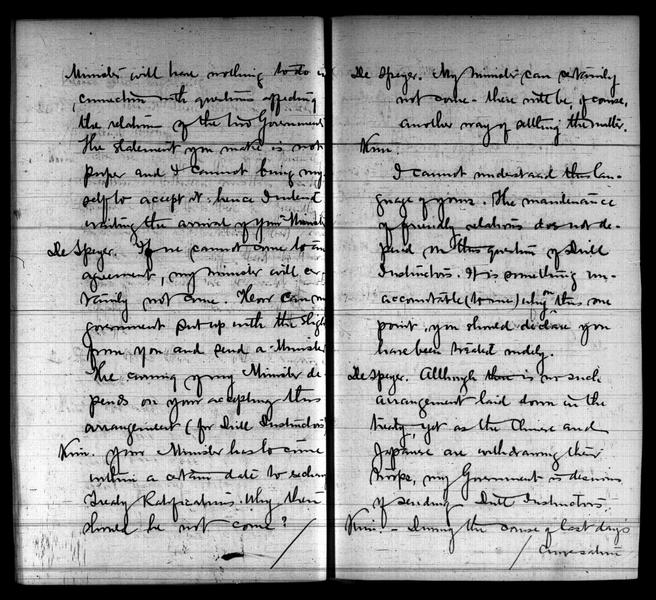 Minister will have nothing to do in
connection with questions affecting
the relations of the two Governments
The statement you make is not
proper and I cannot bring my-
self to accept it: hence I intend
awaiting the arrival of your Minister
De Speyer. If we cannot come to an
agreement, my Minister will cer-
tainly not come. How can my
government put up with the slight
from you and send a Minister
The coming of my Minister de-
pends on your accepting this
arrangement (for Drill Instructors)
Kim. Your Minister has to come
within a certain date to exchange
Treaty Ratifications. Why then
should he not come?
De Speyer. My Minister can certainly
not come - there will be, of course,
another way of settling the matter.
Kim.
I cannot understand this lan-
guage of yours. The maintenance
of friendly relations does not de-
pend on this question of Drill
Instructors. It is something un-
accountable (to me) why on this one
point, you should declare you
have been treated rudely.
De Speyer. Although there is no such
arrangement laid down in the
treaty, yet as the Chinese and
Japanese are withdrawing their
troops, my Government is desirous
of sending Drill Instructors.
Kim. - During the course of last day's
conversation